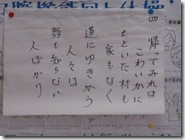 四 帰ってみれば
こわいかに
もといた村も
家もなく
道にゆきかう
人々は
顔も知らない
人ばかり